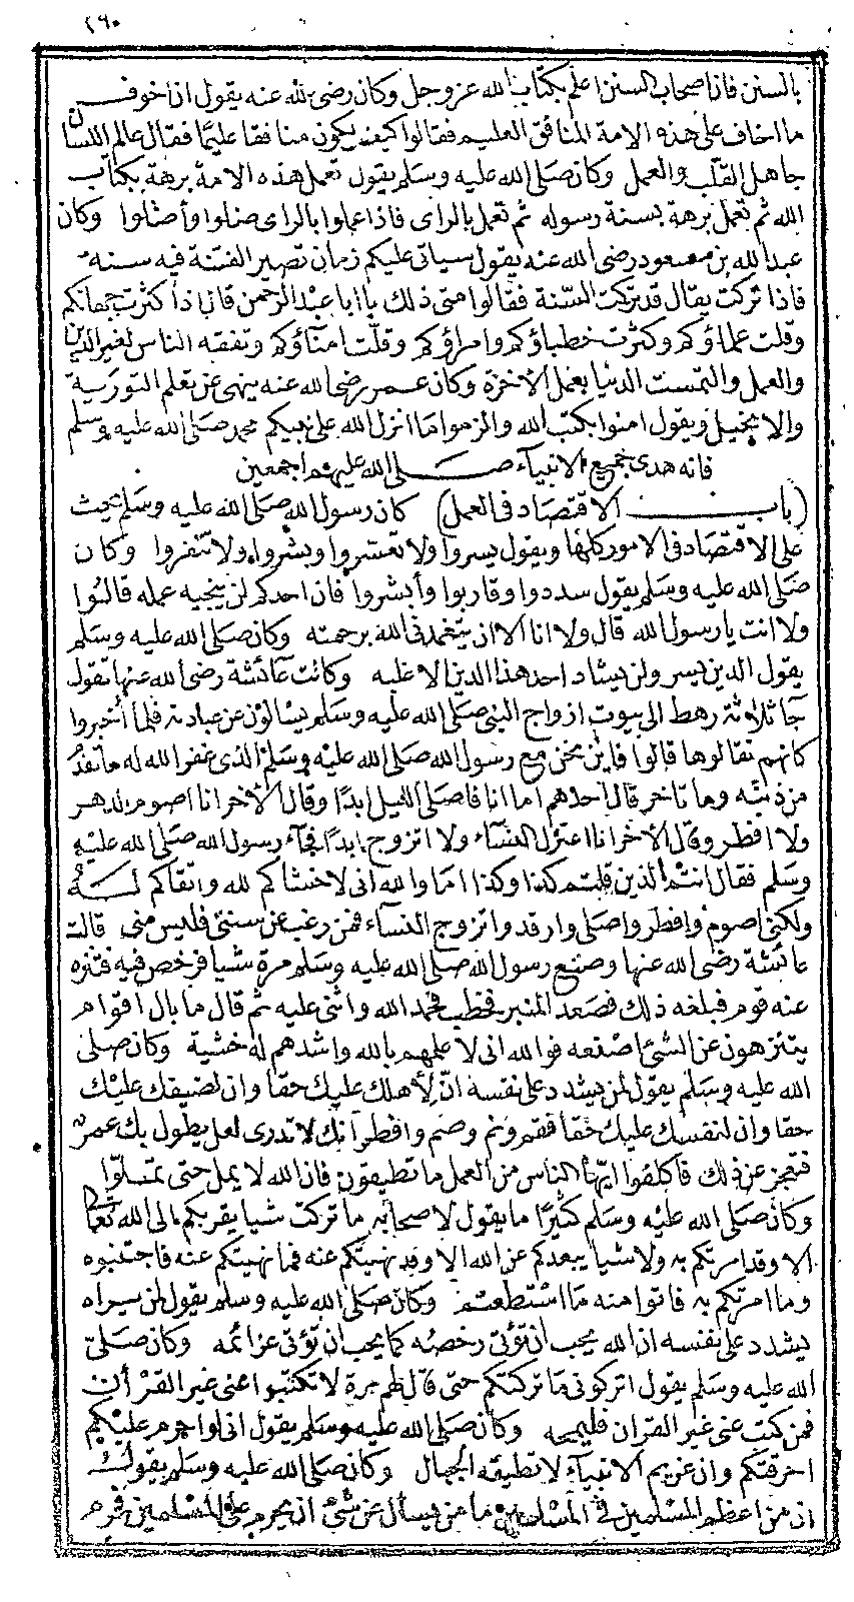 ٢٦٠
بالسنن فان اصحاب السنن اعلم بكتاب الله عز وجل وكان رضى الله عنه يقول ان اخوف
ما اخاف على هذه الامة المنافق العليم فقالوا كيف يكون منافقا عليما فقال عالم اللسان
جاهل القلب والعمل وكان صلى الله عليه وسلم يقول تعمل هذه الامة برهة بكتاب
الله ثم تعمل برهة بسنة رسوله ثم تعمل بالراى فاذا عملوا بالراى ضلوا وأضلوا وكان
عبد الله بن مسعود رضى الله عنه يقول سياتى عليكم زمان تصير الفتنة فيه سنة
فاذا تركت يقال قد تركت السنة فقالوا متى ذلك يا ابا عبد الرحمن قال اذا كثرت جهالكم
وقلت علماؤكم وكثرت خطباؤكم وامراؤكم وقلت امناؤكم وتفقه الناس لغير الدين
والعمل والتمست الدنيا بعمل الاخرة وكان عمر رضى الله عنه ينهى عن تعلم التورية
والانجيل ويقول امنوا بكتب الله والزموا ما انزل الله على نبيكم محمد صلى الله عليه وسلم
فانه هدى جميع الانبياء صلى الله عليهم اجمعين
(باب الاقتصاد فى العمل) كان رسول الله صلى الله عليه وسلم يحث
على الاقتصاد فى الامور كلها ويقول يسروا ولا تعسروا وبشروا ولا تنفروا وكان
صلى الله عليه وسلم يقول سددوا وقاربوا وأبشروا فان احدكم لن ينجيه عمله قالوا
ولا انت يا رسول الله قال ولا انا الا ان يتغمدنى الله برحمته وكان صلى الله عليه وسلم
يقول الدين يسر ولن يشاد احد هذا الدين الا غلبه وكانت عائشة رضى الله عنها تقول
جا ثلاثة رهط الى بيوت ازواج النبى صلى الله عليه وسلم يسالون عن عبادته فلما أخبروا
كانهم تقالوها قالوا فاين نحن مع رسول الله صلى الله عليه وسلم الذى غفر الله له ما تقدم
من ذنبه وما تاخر قال احدهم اما انا فاصلى الليل ابدًا وقال الاخر انا اصوم الدهر
ولا افطر وقال الاخر انا اعتزل النساء ولا اتزوج ابدًا فجآء رسول الله صلى الله عليه
وسلم فقال انتم الذين قلتم كذا وكذا اما والله انى لاخشاكم لله واتقاكم له
ولكنى اصوم وافطر واصلى وارقد واتزوج النساء فمن رغب عن سنتى فليس منى قالت
عائشة رضى الله عنها وصنع رسول الله صلى الله عليه وسلم مرة شيا فرخص فيه فتنزه
عنه قوم فبلغه ذلك فصعد المنبر فخطب فحمد الله واثنى عليه ثم قال ما بال اقوام
يتنزهون عن الشئ اصنعه فوالله انى لاعلمهم بالله واشدهم له خشية وكان صلى
الله عليه وسلم يقول لمن يشدد على نفسه انّ لأهلك عليك حقا وان لضيفك عليك
حقا وان لنفسك عليك حقا فقم ونم وصم وافطر انك لا تدرى لعل يطول بك عمر
فتعجز عن ذلك فاكلفوا ايها الناس من العمل ما تطيقون فان الله لا يمل حتى تملوا
وكان صلى الله عليه وسلم كثيرًا ما يقول لاصحابه ما تركت شيا يقربكم الى الله تعالى
الا وقد امرتكم به ولا شيا يبعدكم عن الله الا وقد نهيتكم عنه فما نهيتكم عنه فاجتنبوه
وما امرتكم به فاتوا منه ما استطعتم وكان صلى الله عليه وسلم يقول لمن يراه
يشدد على نفسه ان الله يحب ان تؤتى رخصه كما يحب ان تؤتى عزائمه وكان صلى
الله عليه وسلم يقول اتركونى ما تركتكم حتى قال لهم مرة لا تكتبوا عنى غير القرأن
فمن كتب عنى غير القران فليمحه وكان صلى الله عليه وسلم يقول انى لو احرم عليكم
احرقتكم وان عزيم الانبياء لا تطيقه الجبال وكان صلى الله عليه وسلم يقول
ان من اعظم المسلمين فى المسلمين من يسأل عن شئ ان يحرم على المسلمين فحرم